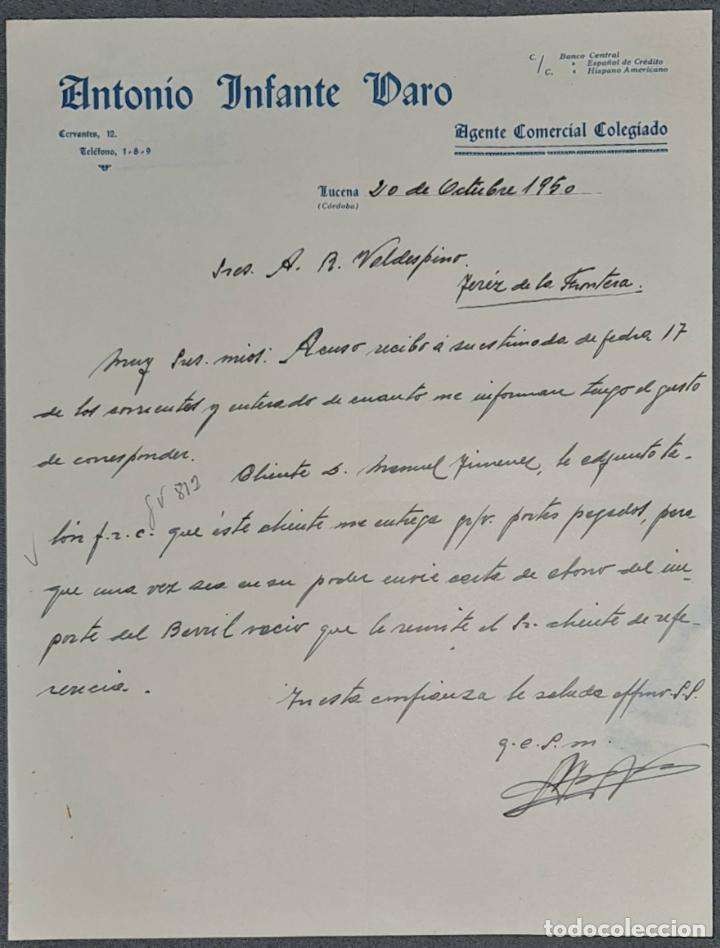 C/C. Banco Central
" Español de Crédito
" Hispano Americano
Antonio Infante Varo
Cervantes, 12.
Teléfono, 1-8-9
Agente Comercial Colegiado
Lucena 20 de Octubre 1950
(Córdoba)
Sres. A. R. Valdespino.
Jeréz de la Frontera.
Muy Sres. mios: Acuso recibo á su estimada de fecha 17
de los corrientes y enterado de cuanto me informan tengo el gusto
de corresponder.
Cliente D. Manuel Jimenez, le adjunto ta-
812
lón f.r.c. que éste cliente me entrega g/v. portes pagados, para
que una vez sea en su poder envie carta de abono del im-
porte del Barril vacio que le remite el Sr. cliente de refe-
rencia.
En esta confianza le saluda affmo. S.S.
q.e.s.m.
todocoleccion